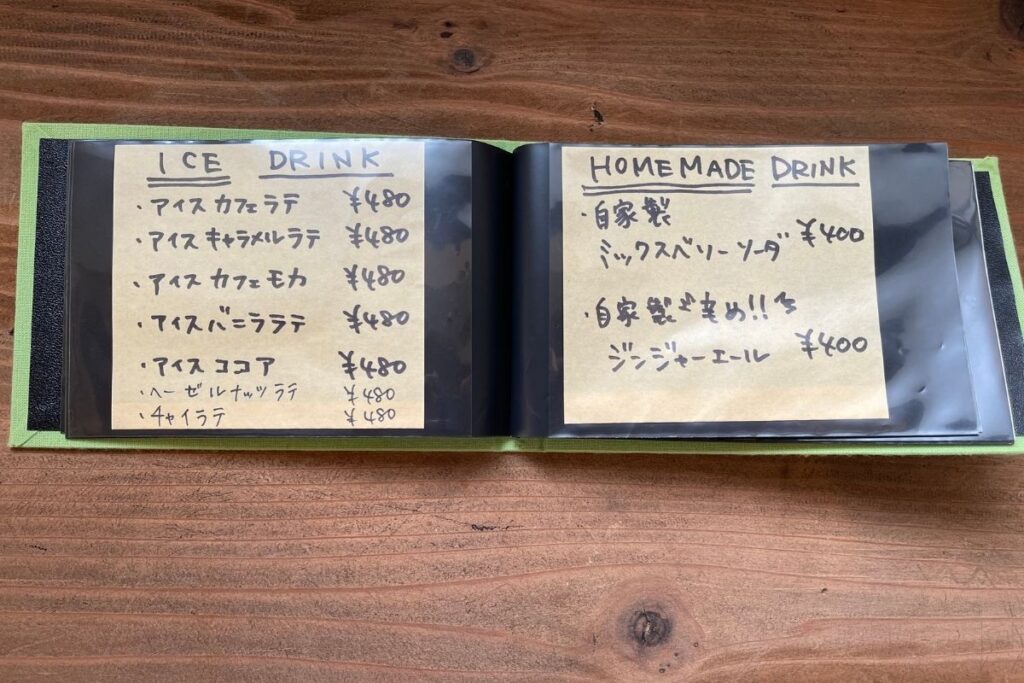 ICE DRINK
・アイスカフェラテ ¥480
・アイスキャラメルラテ ¥480
・アイスカフェモカ ¥480
・アイスバニララテ ¥480
・アイスココア ¥480
・ヘーゼルナッツラテ ¥480
・チャイラテ ¥480
HOMEMADE DRINK
・自家製
ミックスベリーソーダ ¥400
・自家製で辛め!!
ジンジャーエール ¥400